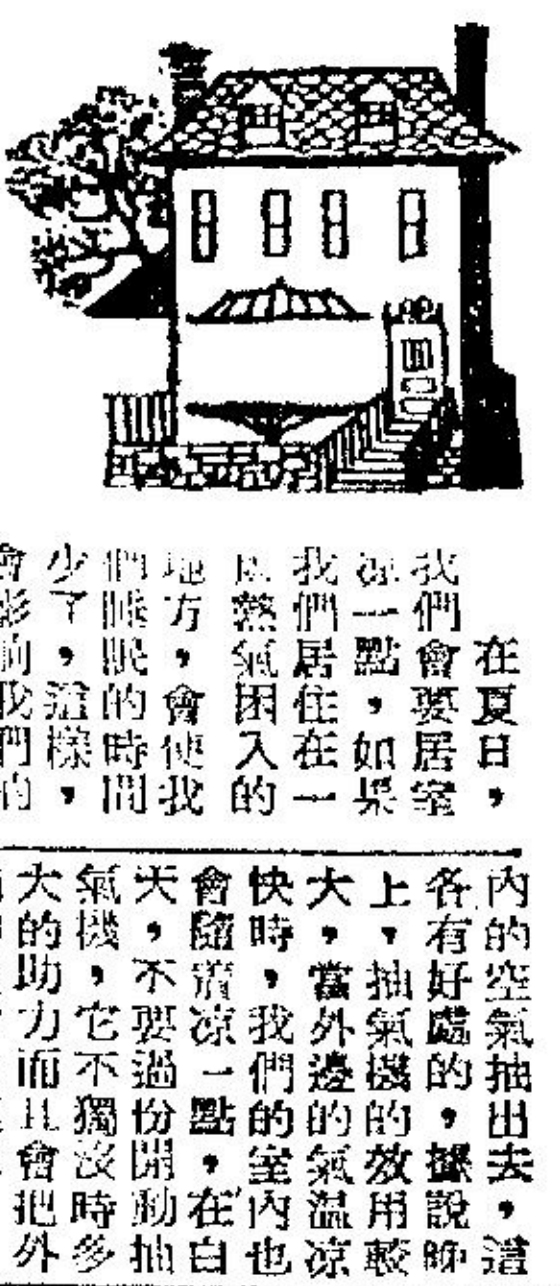 在夏日，
我們會要居室
凉一點，如果
我們居住在一
熱氣困入的
地方，會使我
們睡眠的時間
少了，這樣，
會影
我們
內的空氣抽出去，這
各有好處的，據說
上，抽氣機的效用較
大，當外邊的氣温凉
快時，我們的室內也
會隨着凉一點，在白
天，不要過份開動抽
氣機，它不獨沒時多
大的助力而且會把外